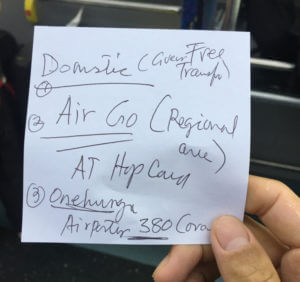 Domstic (Green Free
Transfer)
①
② Air Go (Regional
AT Hop Card
③ Onehunga
Airporter 380 (